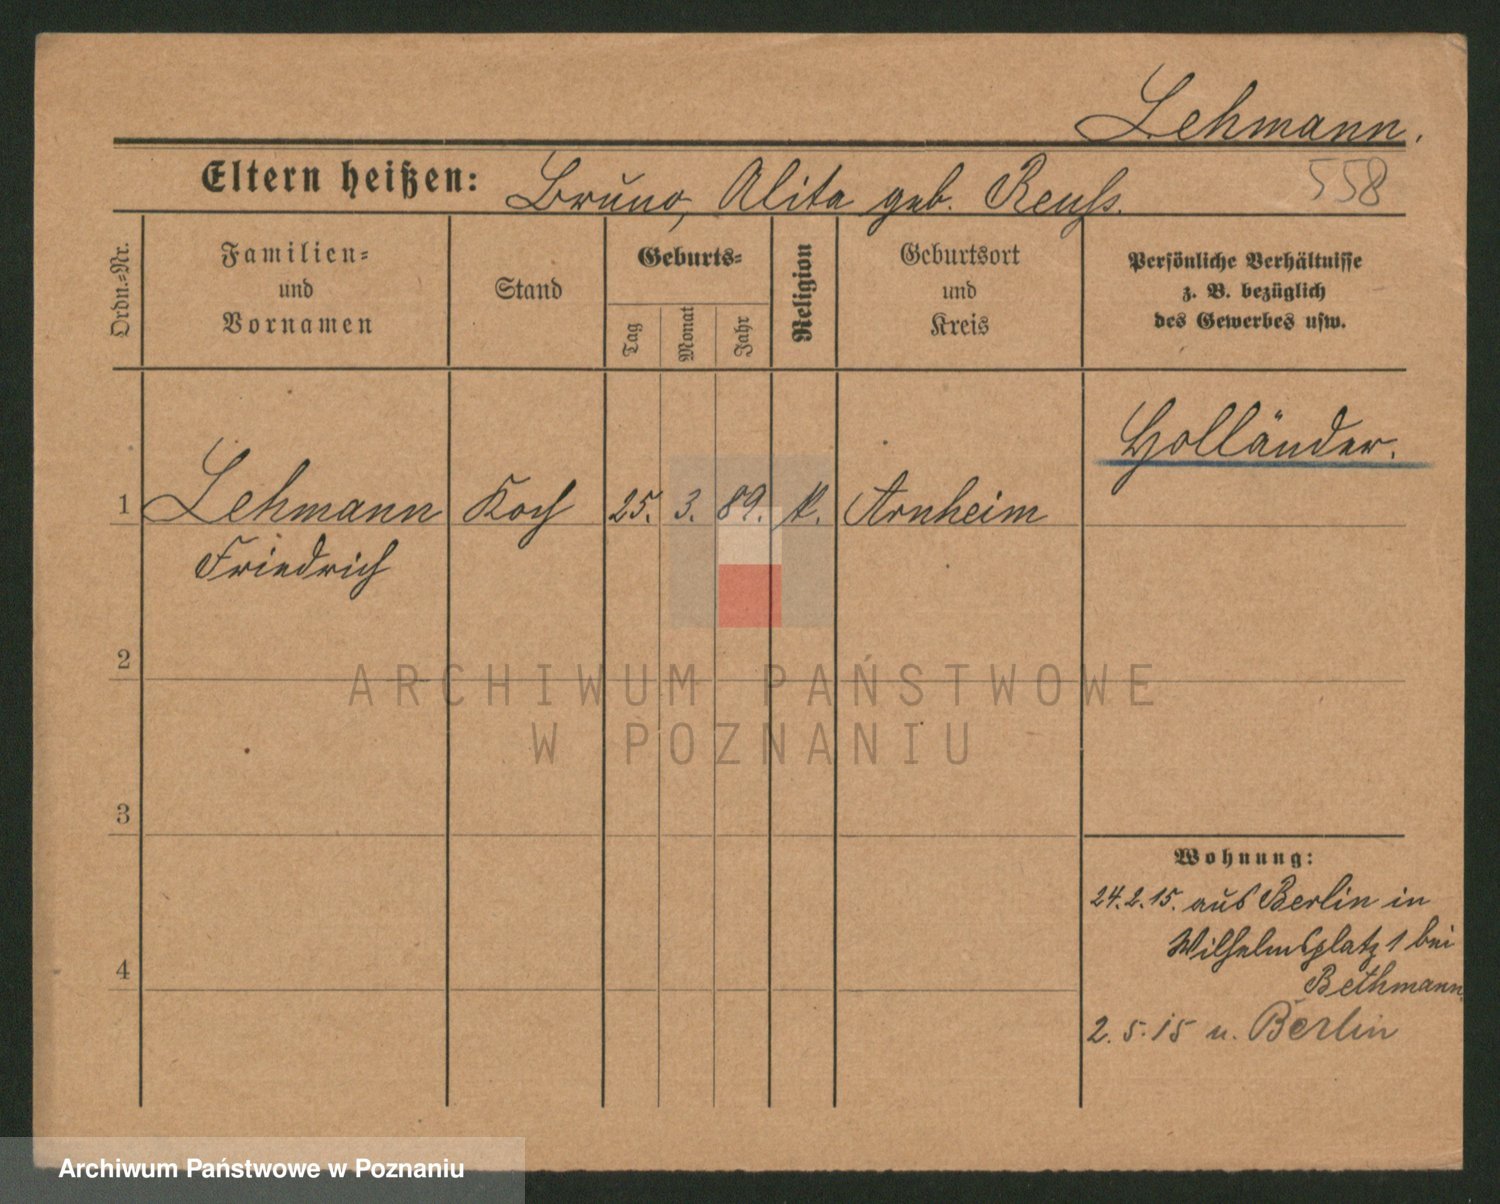 Lehmann.
Eltern heißen: Bruno, Alita geb. Reuß.
558
Ordn.-Nr.
Familien-
und
Vornamen
Stand
Geburts-
Tag
Monat
Jahr
Religion
Geburtsort
und
Kreis
Persönliche Verhältnisse
z. B. bezüglich
des Gewerbes usw.
Holländer.
1 Lehmann Koch 25. 3. 89. k. Arnheim
Friedrich
2
ARCHIWUM PAŃSTWOWE
W POZNANIU
3
Wohnung:
24.2.15. aus Berlin in
Wilhelmsplatz 1 bei
4
Bethmann
2.5.15 n. Berlin
Archiwum Państwowe w Poznaniu